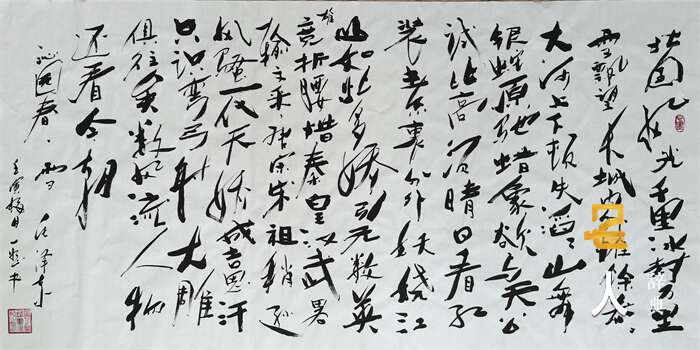 北国风光千里冰封万里
雪飘望长城内外惟余莽莽
大河上下顿失滔滔山舞
银蛇原驰蜡象欲与天公
试比高须晴日看红
装素裹分外妖娆江
山如此多娇引无数英
雄竞折腰惜秦皇汉武略
输文采唐宗宋祖稍逊
风骚一代天骄成吉思汗
只识弯弓射大雕
俱往矣数风流人物
还看今朝
沁园春·雪 毛泽东
名人
辞典